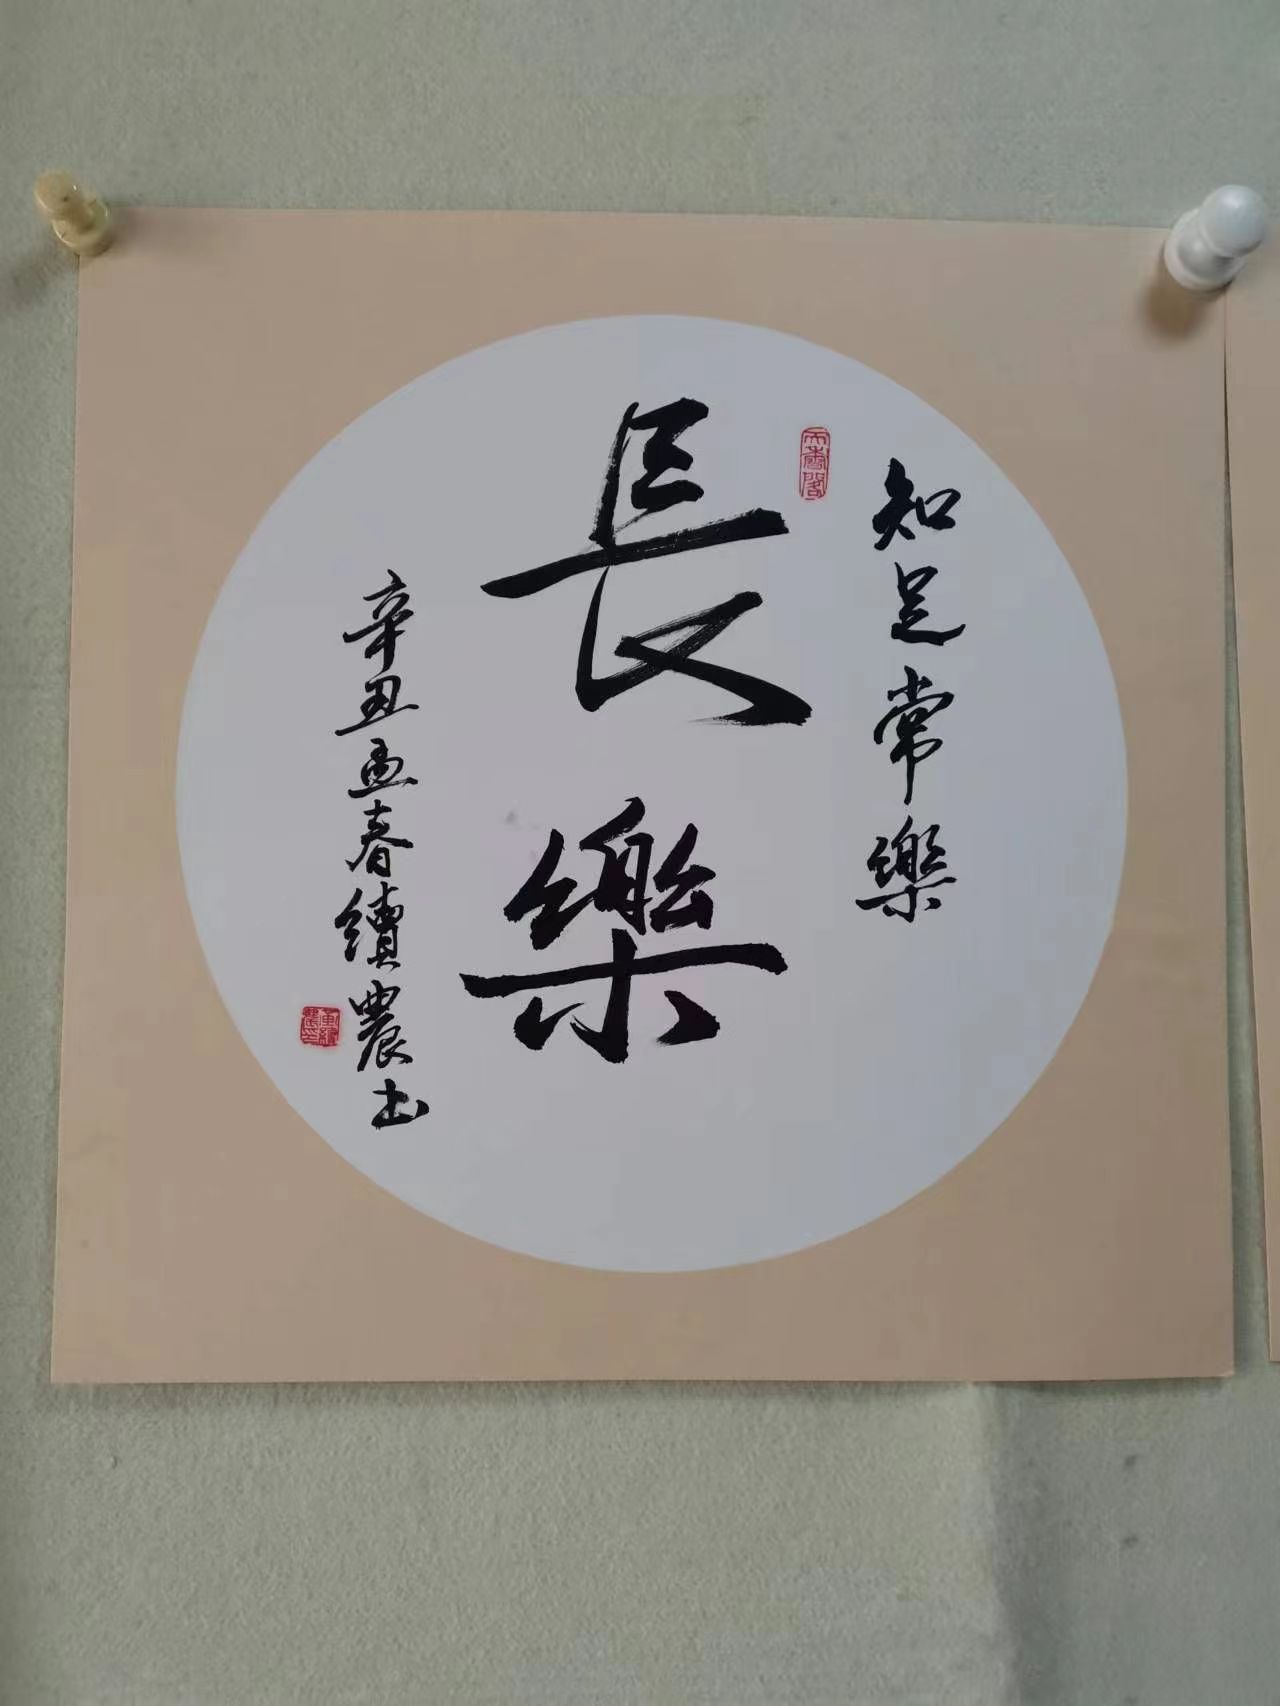 知足常樂
長樂
辛丑孟春續農书